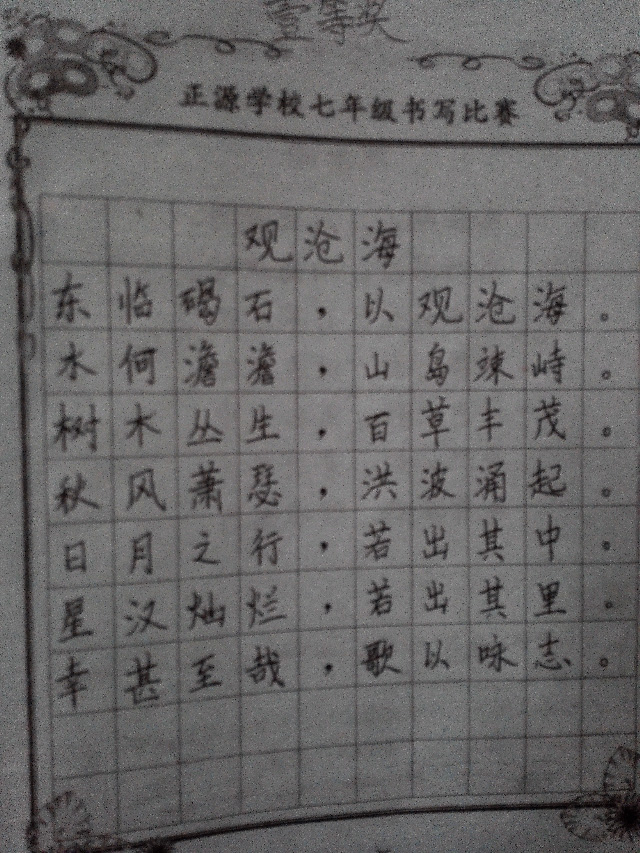 壹等奖
正源学校七年级书写比赛
观沧海
东临碣石，以观沧海。
水何澹澹，山岛竦峙。
树木丛生，百草丰茂。
秋风萧瑟，洪波涌起。
日月之行，若出其中。
星汉灿烂，若出其里。
幸甚至哉，歌以咏志。